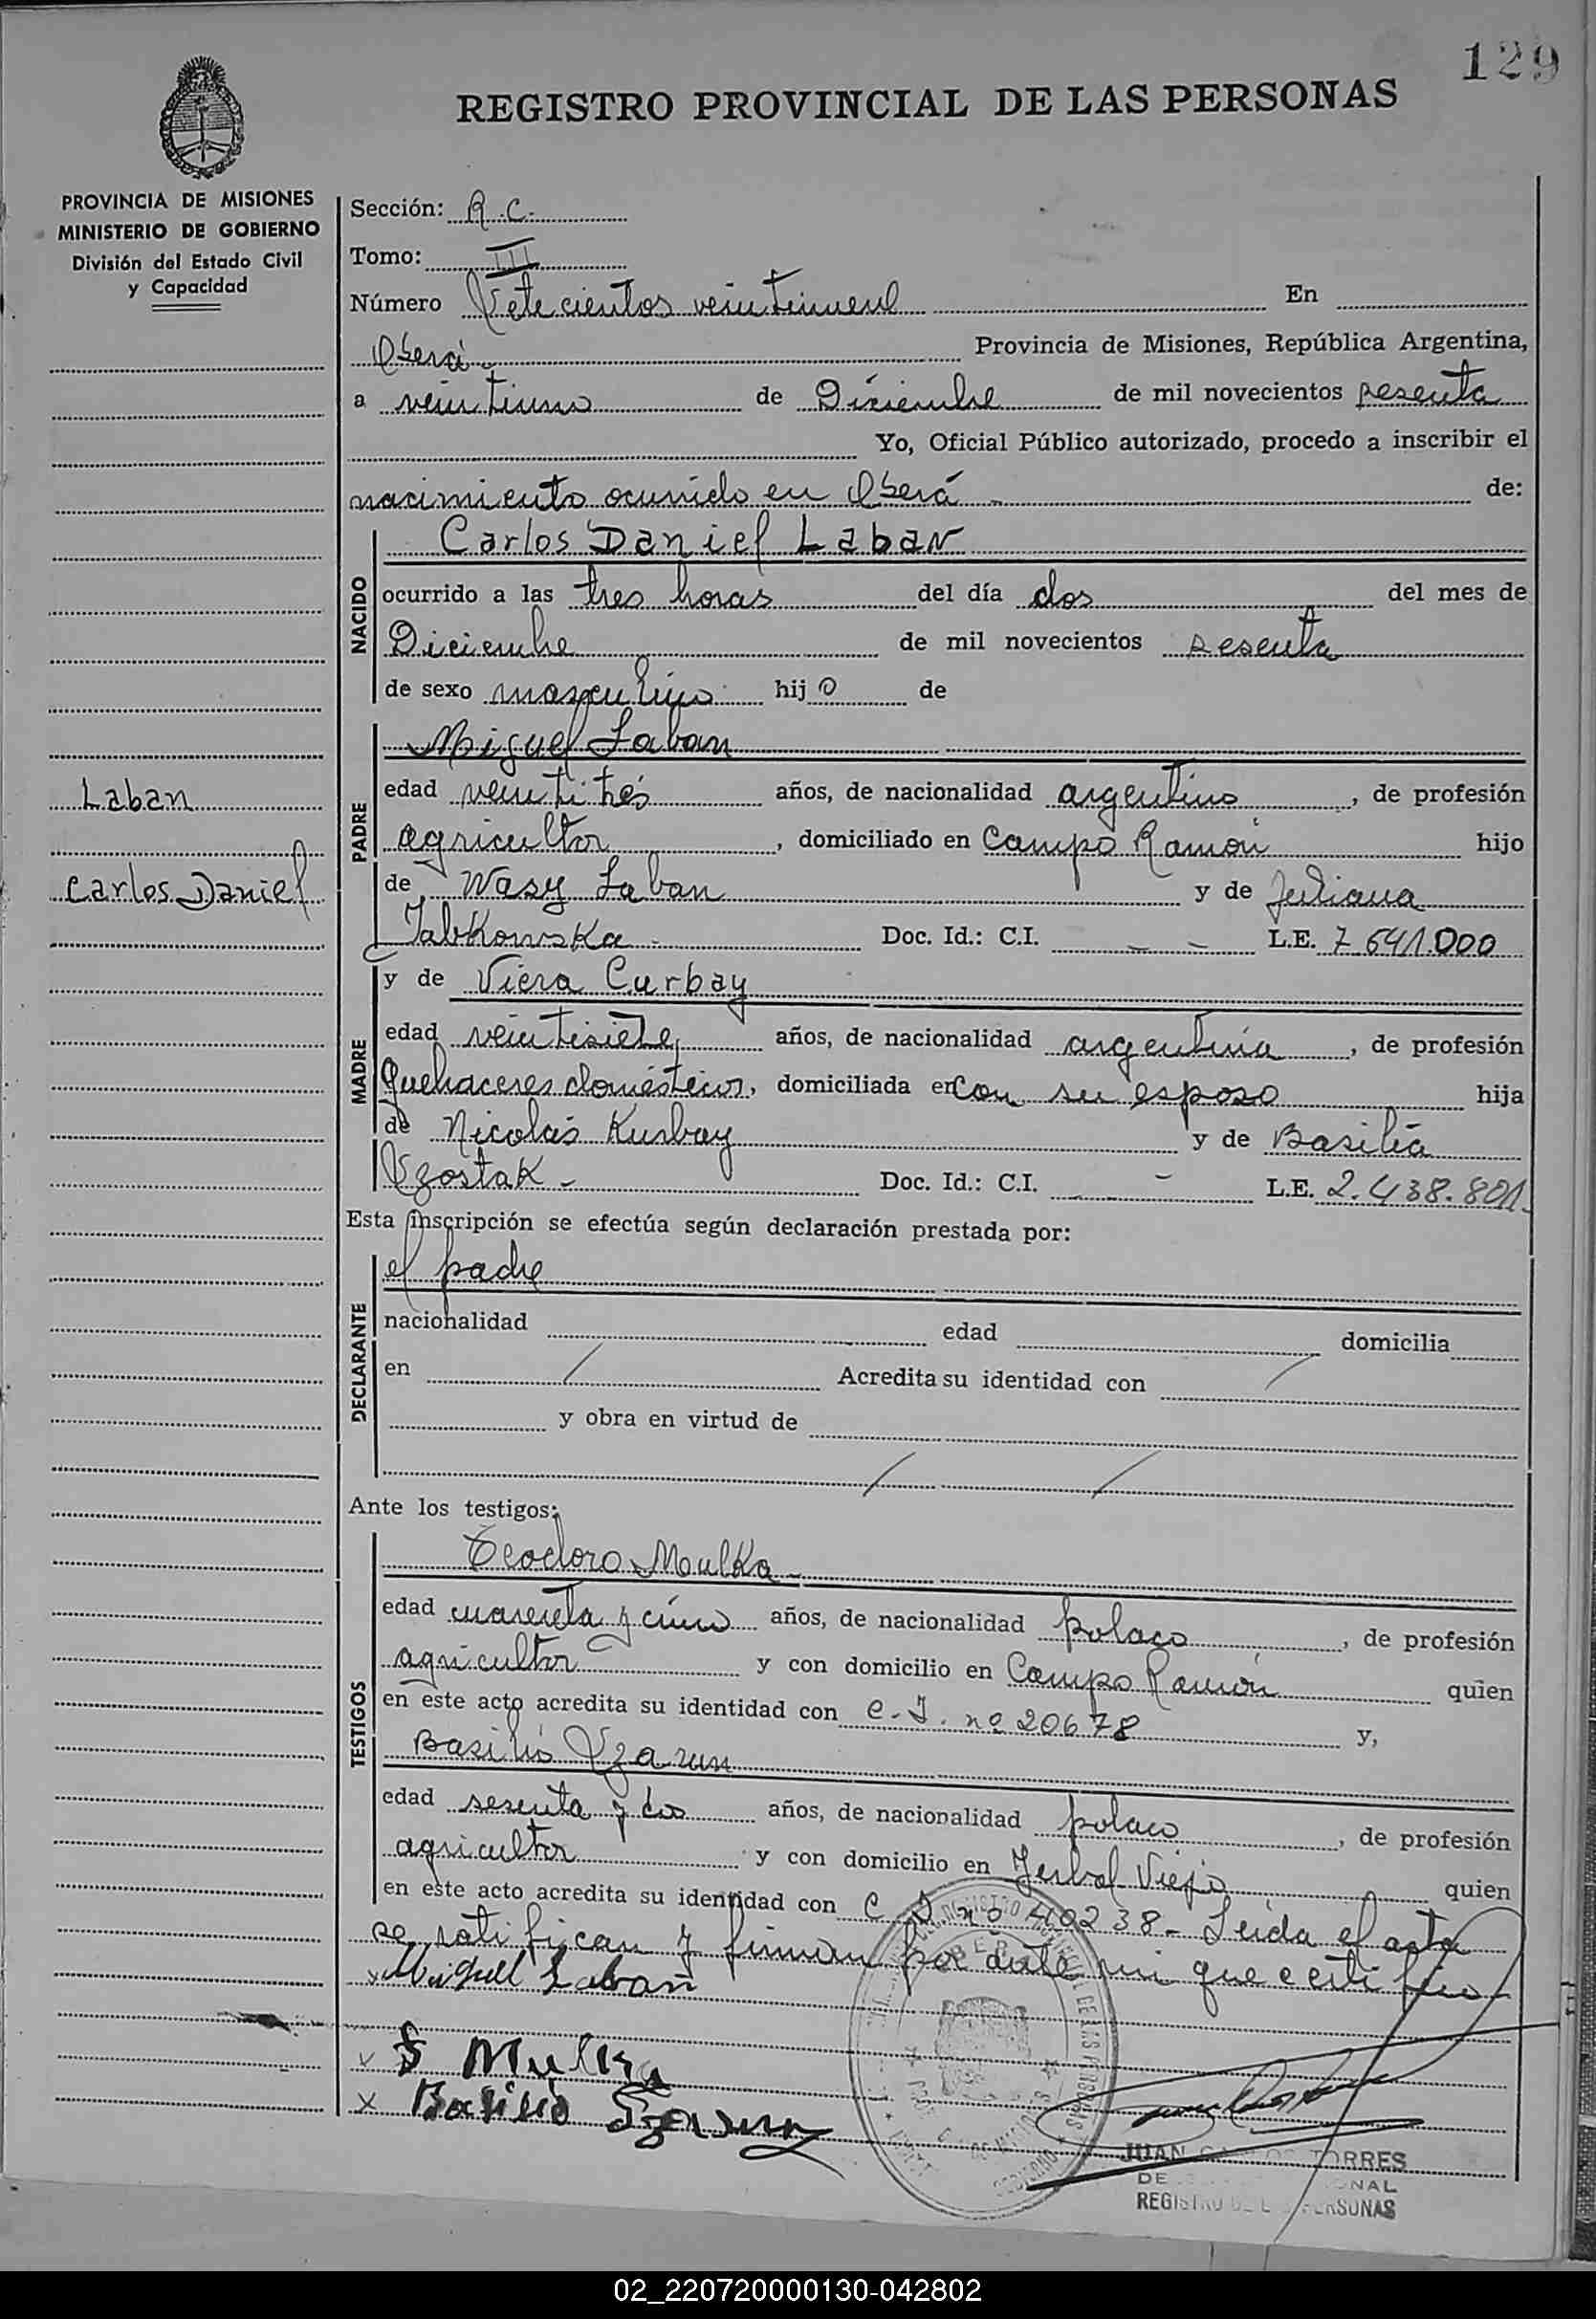 129
REGISTRO PROVINCIAL DE LAS PERSONAS
PROVINCIA DE MISIONES
MINISTERIO DE GOBIERNO
División del Estado Civil
y Capacidad
Sección: R.C.
Tomo: III
Número Setecientos veintinueve En
Oberá Provincia de Misiones, República Argentina,
a veintiuno de Diciembre de mil novecientos sesenta
Yo, Oficial Público autorizado, procedo a inscribir el
nacimiento ocurrido en Oberá - de:
NACIDO
Carlos Daniel Laban
ocurrido a las tres horas del día dos del mes de
Diciembre de mil novecientos sesenta
de sexo masculino hijo de
PADRE
Miguel Laban
Laban
edad veintitrés años, de nacionalidad argentino, de profesión
agricultor, domiciliado en Campo Ramón hijo
Carlos Daniel
de Wasy Laban y de Juliana
Jabkowska - Doc. Id.: C.I. - - L.E. 7.641.000
MADRE
y de Viera Curbay
edad veintisiete años, de nacionalidad argentina, de profesión
Quehaceres domésticos, domiciliada en con su esposo hija
de Nicolás Kurbay y de Basilia
Szostak - Doc. Id.: C.I. - - L.E. 2.438.801.
Esta inscripción se efectúa según declaración prestada por:
DECLARANTE
el padre
nacionalidad edad domicilia
en / Acredita su identidad con /
y obra en virtud de
/ /
Ante los testigos:
TESTIGOS
Teodoro Moulka -
edad cuarenta y cinco años, de nacionalidad polaco, de profesión
agricultor y con domicilio en Campo Ramón quien
en este acto acredita su identidad con C.I. nº 20678 y,
Basilio Szarun
edad sesenta y dos años, de nacionalidad polaco, de profesión
agricultor y con domicilio en Yerbal Viejo quien
en este acto acredita su identidad con C.I. nº 40238 - Leída el acta
se ratifican y firman por ante mi que certifico
x Miguel Laban
x Mulka
x Basilio
JUAN TORRES
REGISTRO DE PERSONAS
02_220720000130-042802